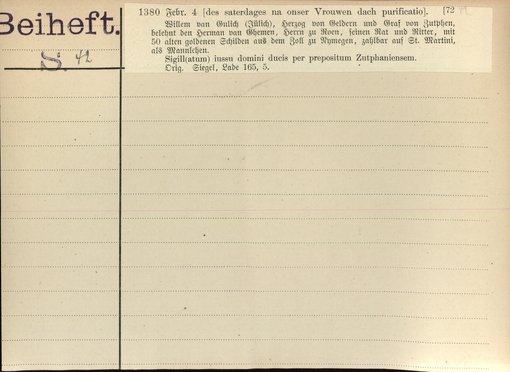 Beiheft.
S. 42
1380 Febr. 4 [des saterdages na onser Vrouwen dach purificatio]. [72
Willem van Gulich (Jülich), Herzog von Geldern und Graf von Zutphen,
belehnt den Herman van Ghemen, Herrn zu Roen, seinen Rat und Ritter, mit
50 alten goldenen Schilden aus dem Zoll zu Nymegen, zahlbar auf St. Martini,
als Mannlehen.
Sigill(atum) iussu domini ducis per prepositum Zutphaniensem.
Orig. Siegel, Lade 165, 5.